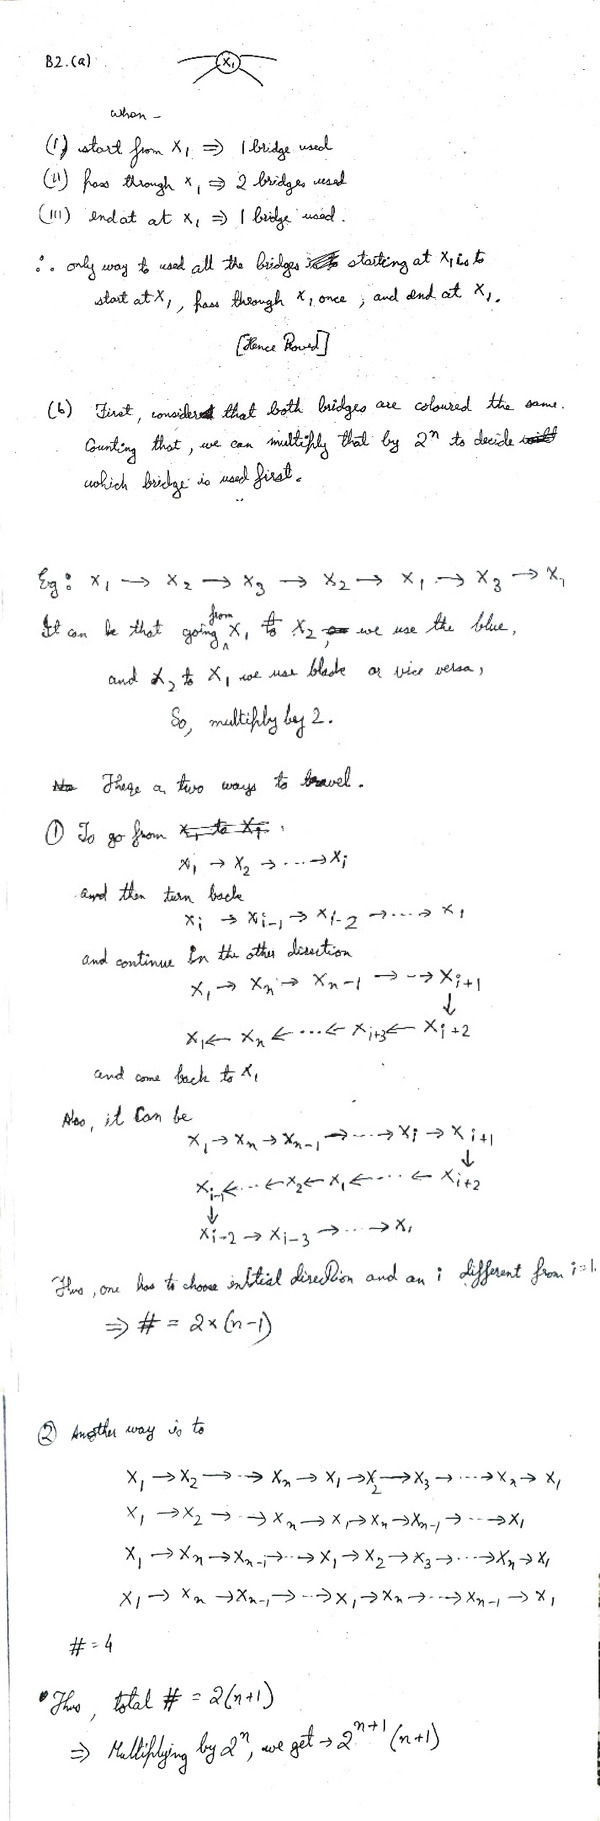 B2.(a)
X1
when -
(i) start from x1 ⇒ 1 bridge used
(ii) pass through x1 ⇒ 2 bridges used
(iii) end at at x1 ⇒ 1 bridge used.
∴ only way to used all the bridges starting at x1 is to
start at x1, pass through x1 once, and end at x1.
[Hence Proved]
(b) First, consider that both bridges are coloured the same.
Counting that, we can multiply that by 2^n to decide
which bridge is used first.
Eg: x1 → x2 → x3 → x2 → x1 → x3 → x1
It can be that going from x1 to x2, we use the blue,
and x2 to x1 we use black or vice versa,
So, multiply by 2.
There a two ways to travel.
① To go from
x1 → x2 → ... → xi
and then turn back
xi → xi-1 → xi-2 → ... → x1
and continue in the other direction
x1 → xn → xn-1 → ... → xi+1
↓
x1 ← xn ← ... ← xi+3 ← xi+2
and come back to x1
Also, it can be
x1 → xn → xn-1 → ... → xi → xi+1
↓
xi-1 ← ... ← x2 ← x1 ← ... ← xi+2
↓
xi-2 → xi-3 → ... → x1
Thus, one has to choose initial direction and an i different from i=1.
⇒ # = 2×(n-1)
② Another way is to
x1 → x2 → ... → xn → x1 → x2 → x3 → ... → xn → x1
x1 → x2 → ... → xn → x1 → xn → xn-1 → ... → x1
x1 → xn → xn-1 → ... → x1 → x2 → x3 → ... → xn → x1
x1 → xn → xn-1 → ... → x1 → xn → ... → xn-1 → x1
# = 4
Thus, total # = 2(n+1)
⇒ Multiplying by 2^n, we get → 2^n+1 (n+1)